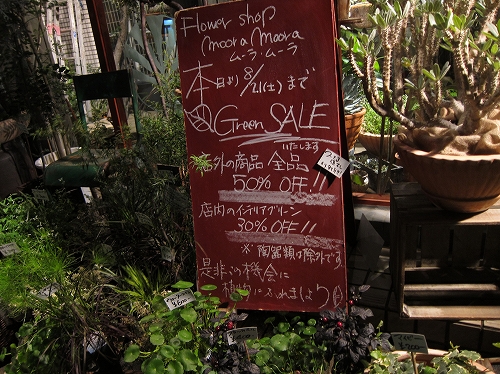 Flower shop
moora Moora
ムーラ・ムーラ
本日より 8/21(土)まで
Green SALE
いたします
店外の商品 全品
50% OFF!!
店内のインテリアグリーン
30% OFF!!
※陶器類は除外です
是非この機会に